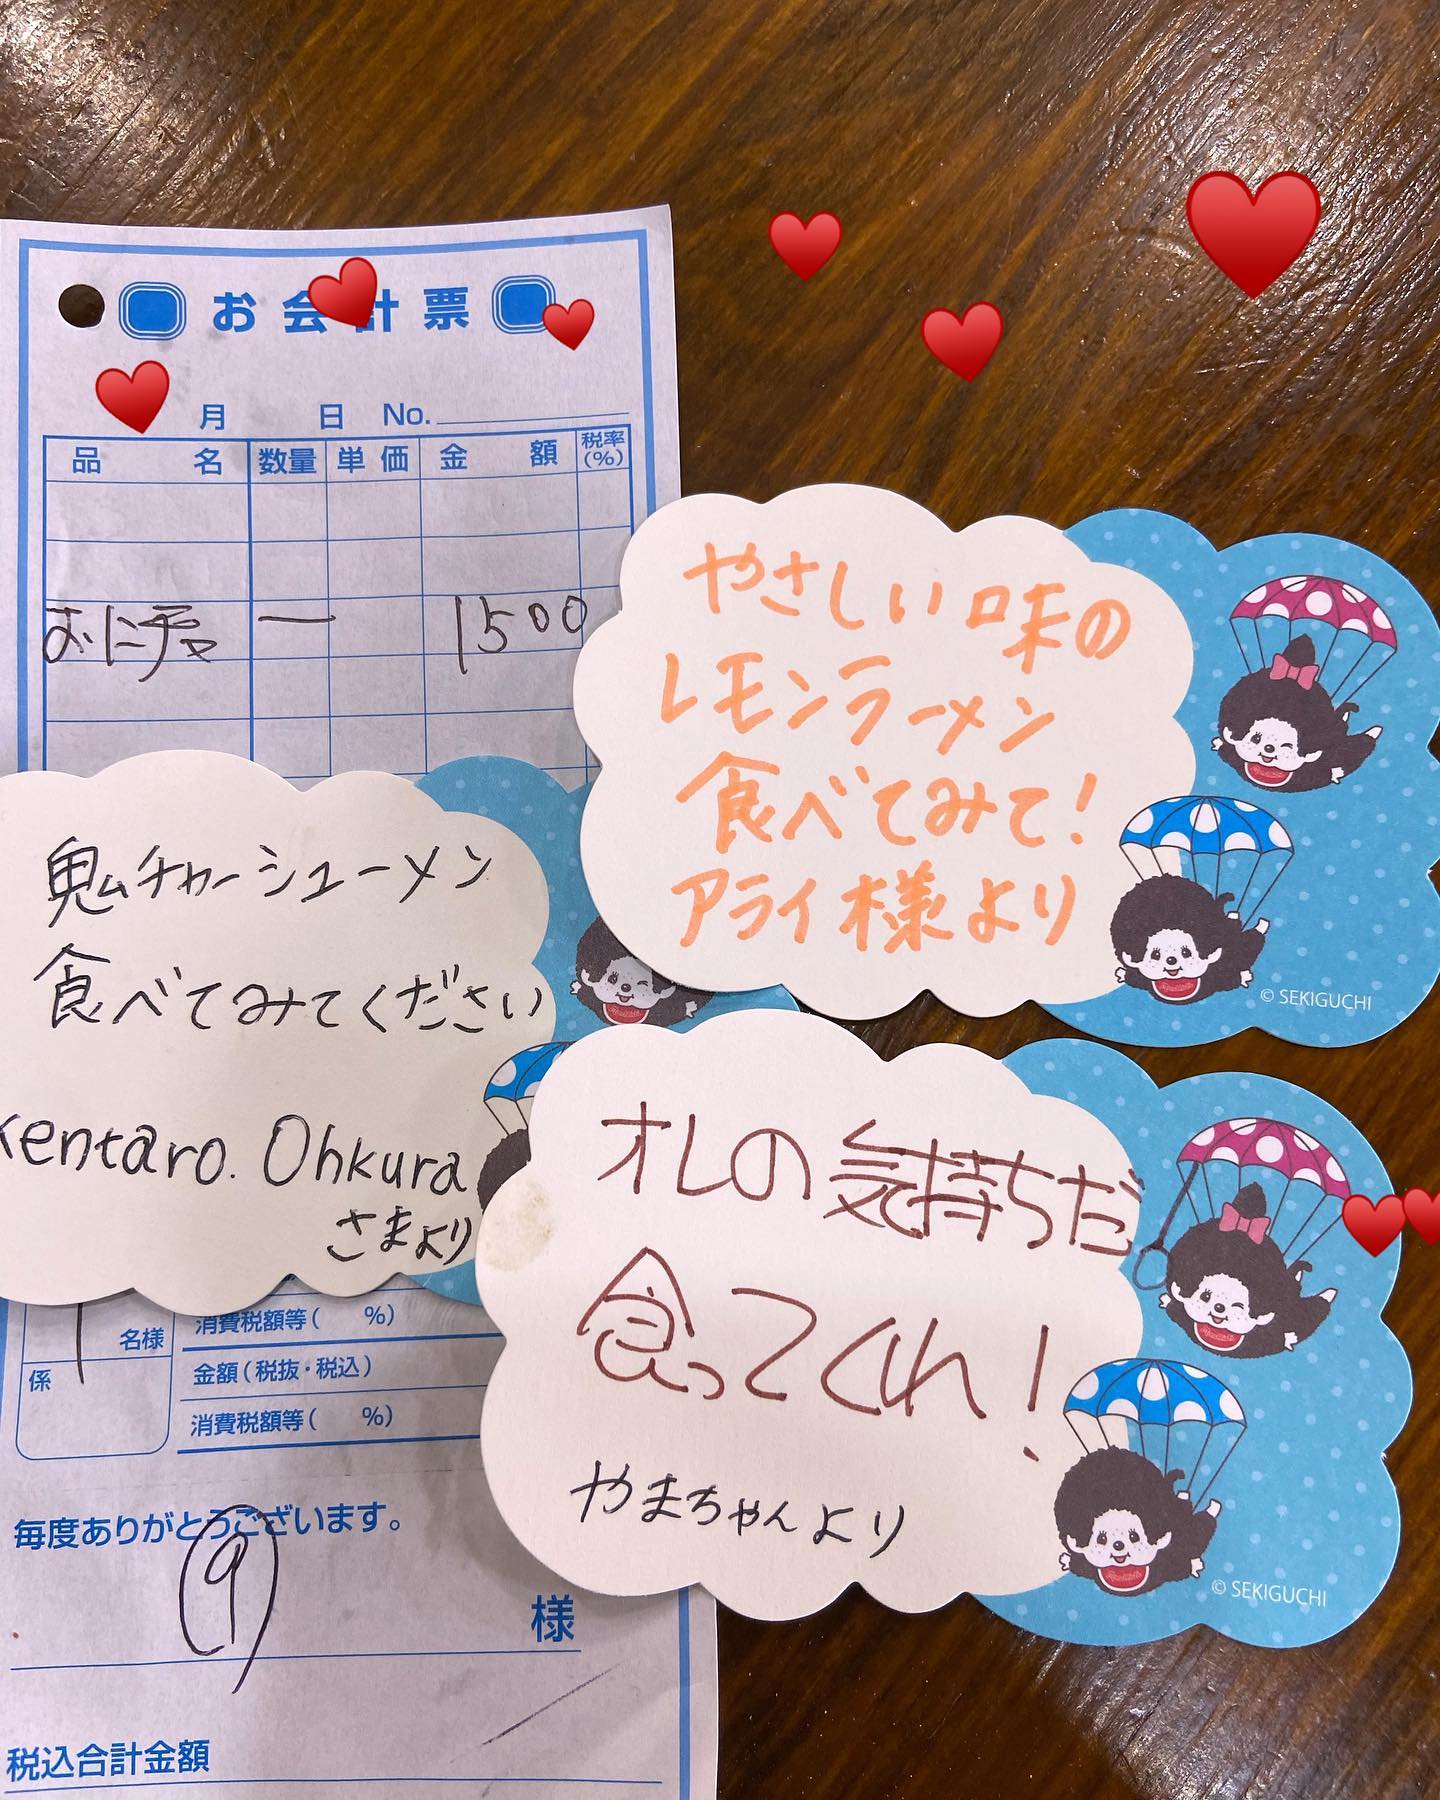 お会計票
月 日 No.
品 名 数量 単価 金 額 税率(%)
おにチャ 一 1500
やさしい味の
レモンラーメン
食べてみて！
アライ様より
© SEKIGUCHI
鬼チャーシューメン
食べてみてください
Kentaro. Ohkura
さまより
オレの気持ちだ
食ってくれ！
やまちゃんより
© SEKIGUCHI
名様
係
消費税額等( %)
金額(税抜・税込)
消費税額等( %)
毎度ありがとうございます。
9
様
税込合計金額